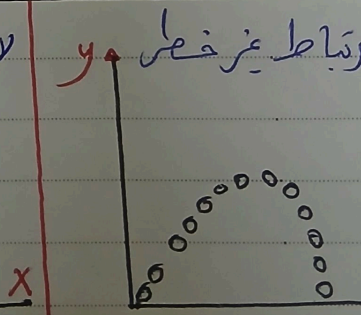 رتباط غير خطي
y
X